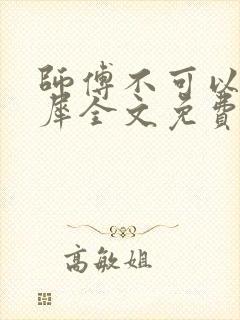 師傅不可以
犀全文免費
高敏姐